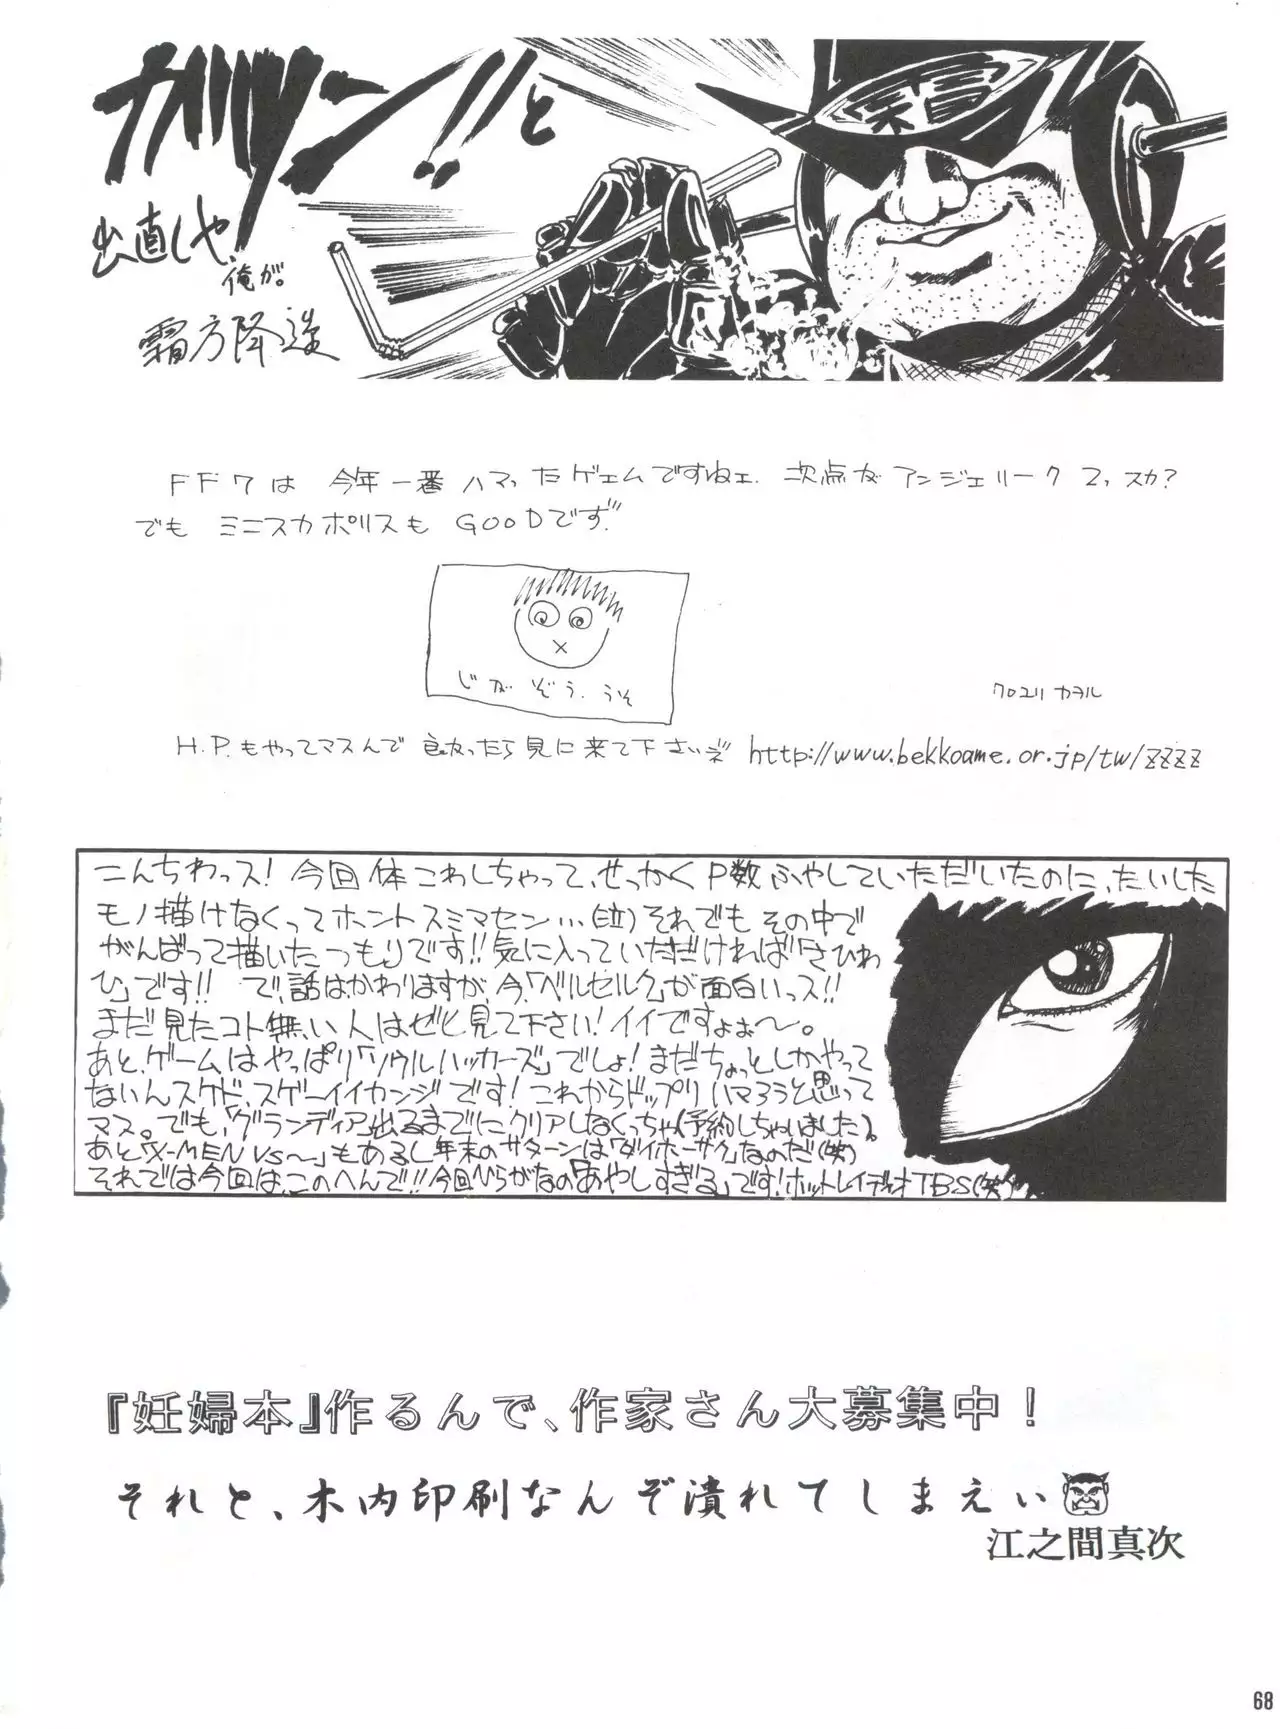 ガツン!!と
出直しや、
俺が。
霜方降造
FF7は 今年一番ハマったゲェムですねェ. 次点がアンジェリーク2っスカ?
でも ミニスカポリスも GOODです"
じがぞう.うそ
クロユリ カヲル
H.P.もやってマスんで 良かったら見に来て下さいネ http://www.bekkoame.or.jp/tw/zzzz
こんちわっス!今回体こわしちゃって、せっかくP数ふやしていただいたのに、たいした
モノ描けなくってホントスミマセン…(泣)それでもその中で
がんばって描いたつもりです!!気に入っていただければ「さひわ
ひ」です!! で、話はかわりますが、今、「ベルセルク」が面白いっス!!
まだ見たコト無い人はぜひ見て下さい!イイですよぉ〜。
あと、ゲームはやっぱり「ソウルハッカーズ」でしょ!まだちょっとしかやって
ないんスケド、スゲーイイカンジです!これからドップリハマろうと思って
マス。でも、「グランディア」出るまでにクリアしなくっちゃ(予約しちゃいました)。
あと「X-MEN VS〜」もあるし年末のサターンは「ダイホーサク」なのだ(笑)
それでは今回は、このへんで!!今回ひらがなの「あやしすぎる」です!ホットレイディオTBS(笑)
『妊婦本』作るんで、作家さん大募集中!
それと、木内印刷なんぞ潰れてしまえぃ
江之間真次
68